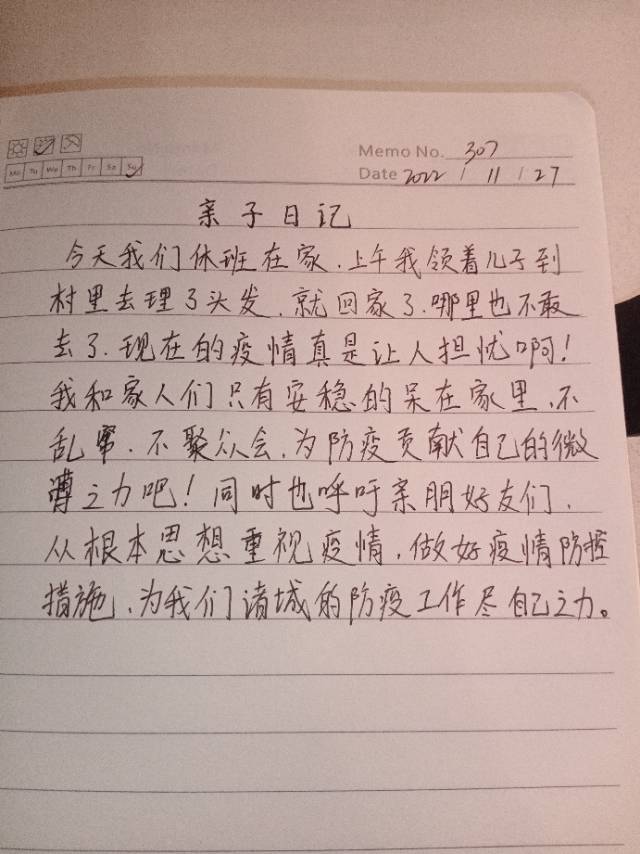 Memo No. 307
Mo Tu We Th Fr Sa Su
Date 2022 / 11 / 27
亲子日记
今天我们休班在家.上午我领着儿子到
村里去理了头发.就回家了.哪里也不敢
去了.现在的疫情真是让人担忧啊!
我和家人们只有安稳的呆在家里.不
乱窜.不聚众会.为防疫贡献自己的微
薄之力吧!同时也呼吁亲朋好友们.
从根本思想重视疫情.做好疫情防控
措施.为我们诸城的防疫工作尽自己之力。